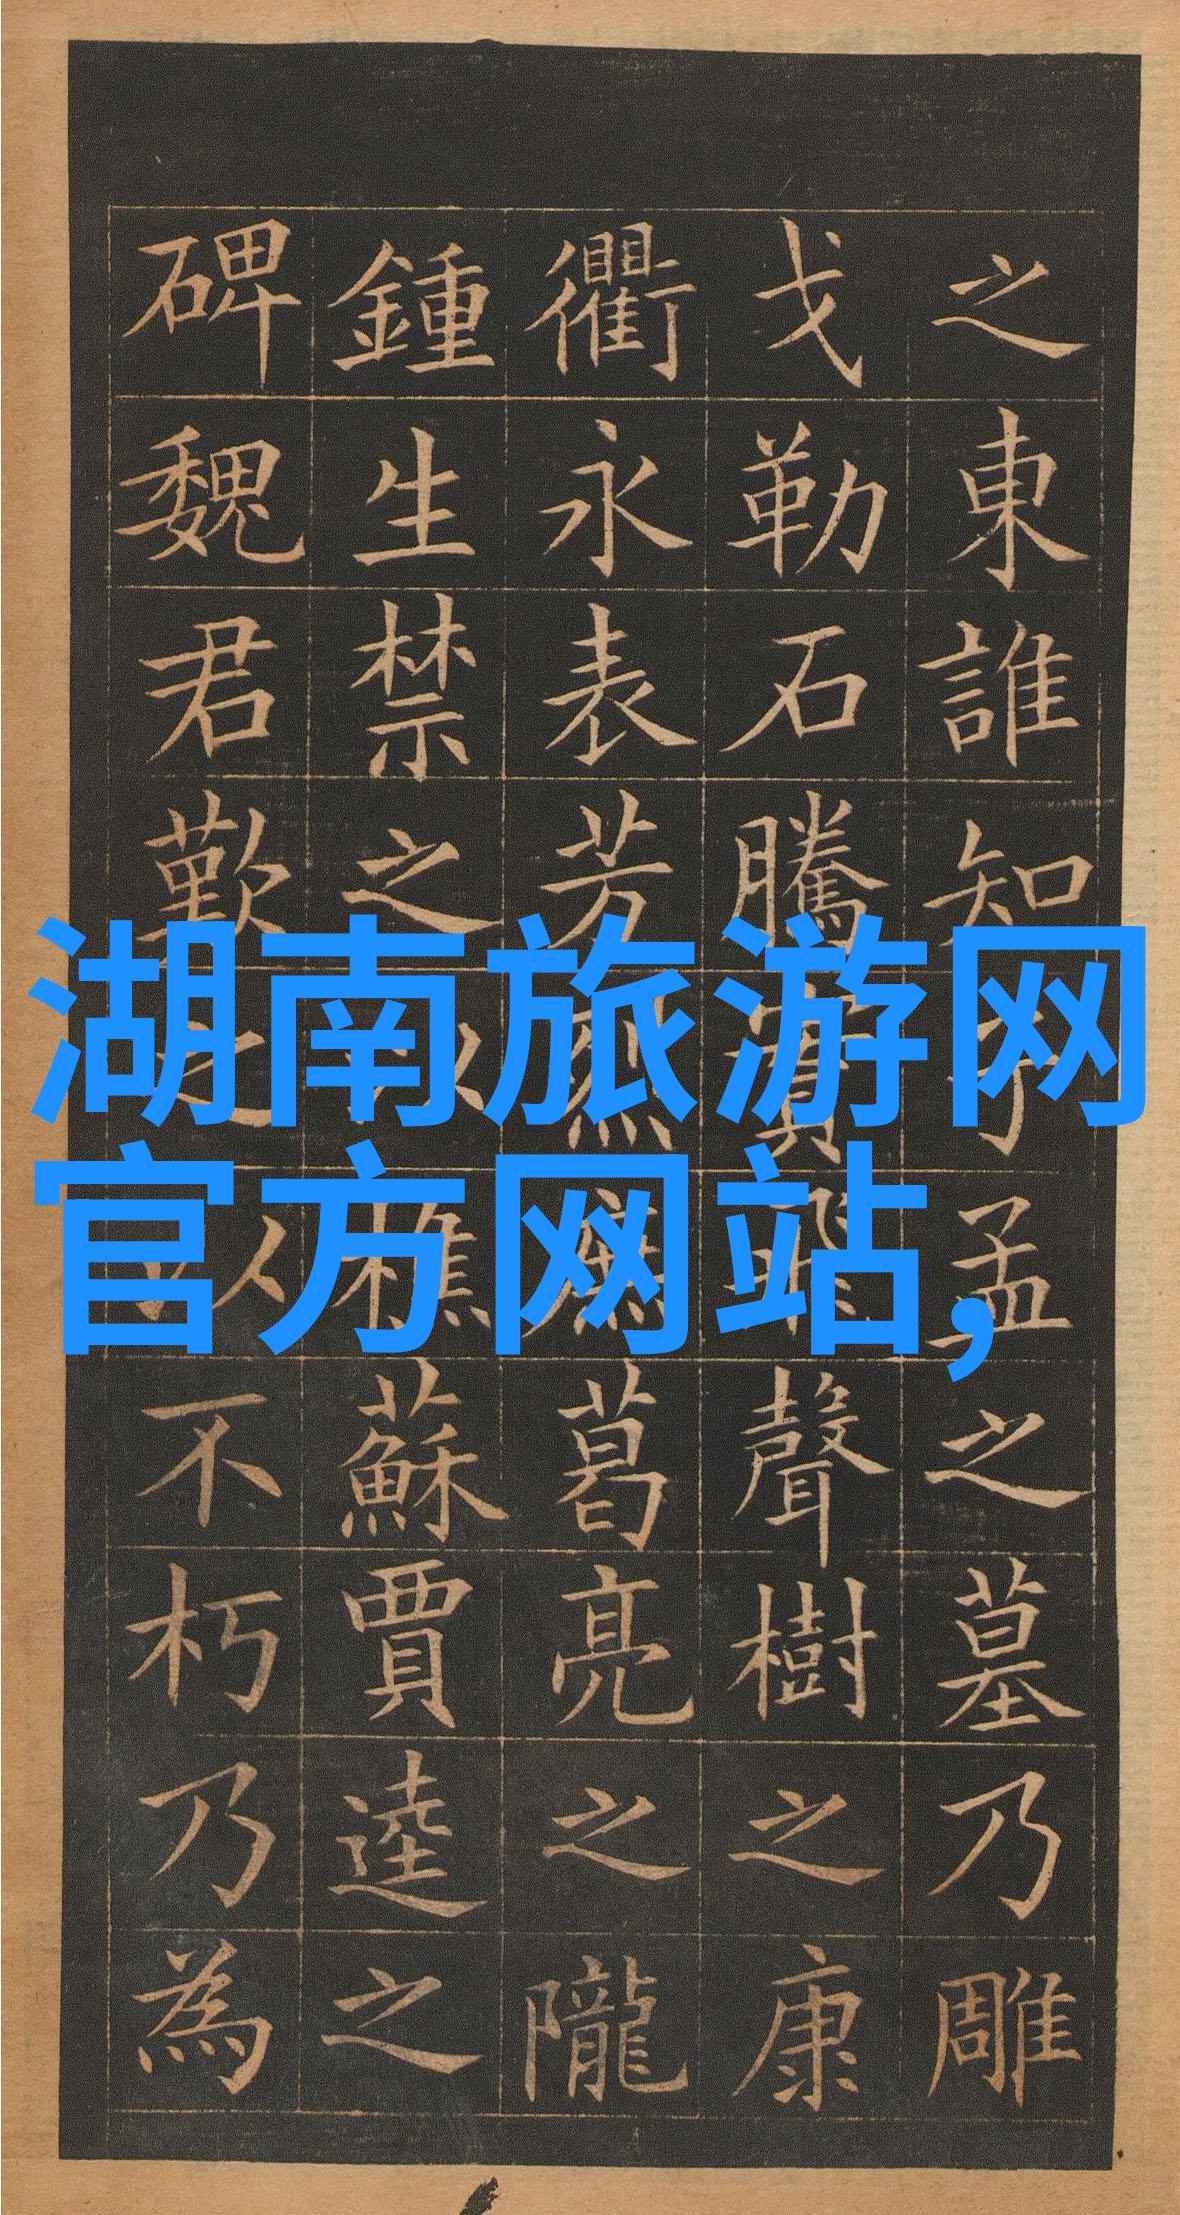 之東誰知子孟之墓乃雕
戈勒石騰實飛聲樹之康
衢永表芳烈庶葛亮之隴
鍾生禁之以樵蘇賈逵之
碑魏君歎之以不朽乃為
湖南旅游网
官方网站,